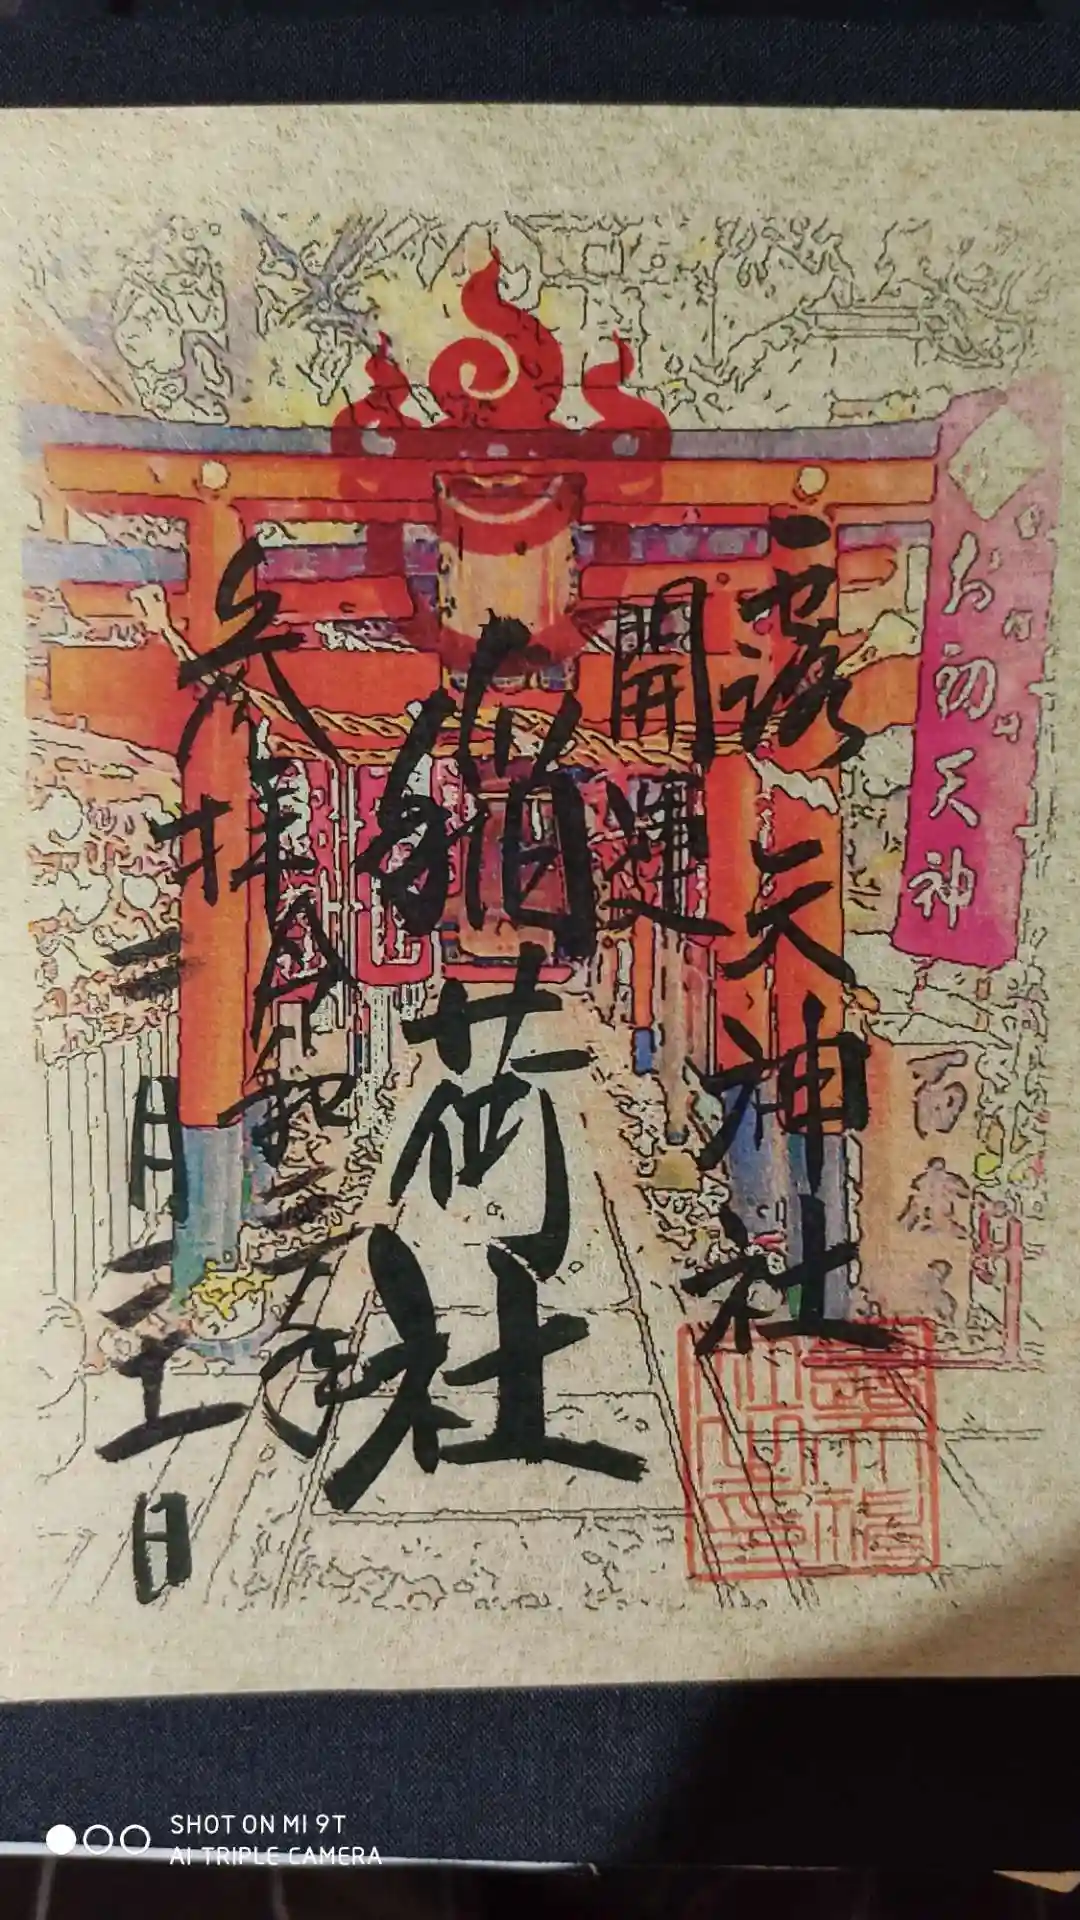 お初天神
百度
露天神社
開運
稲荷社
奉拝 令和三年
二月 日
SHOT ON MI 9T
AI TRIPLE CAMERA